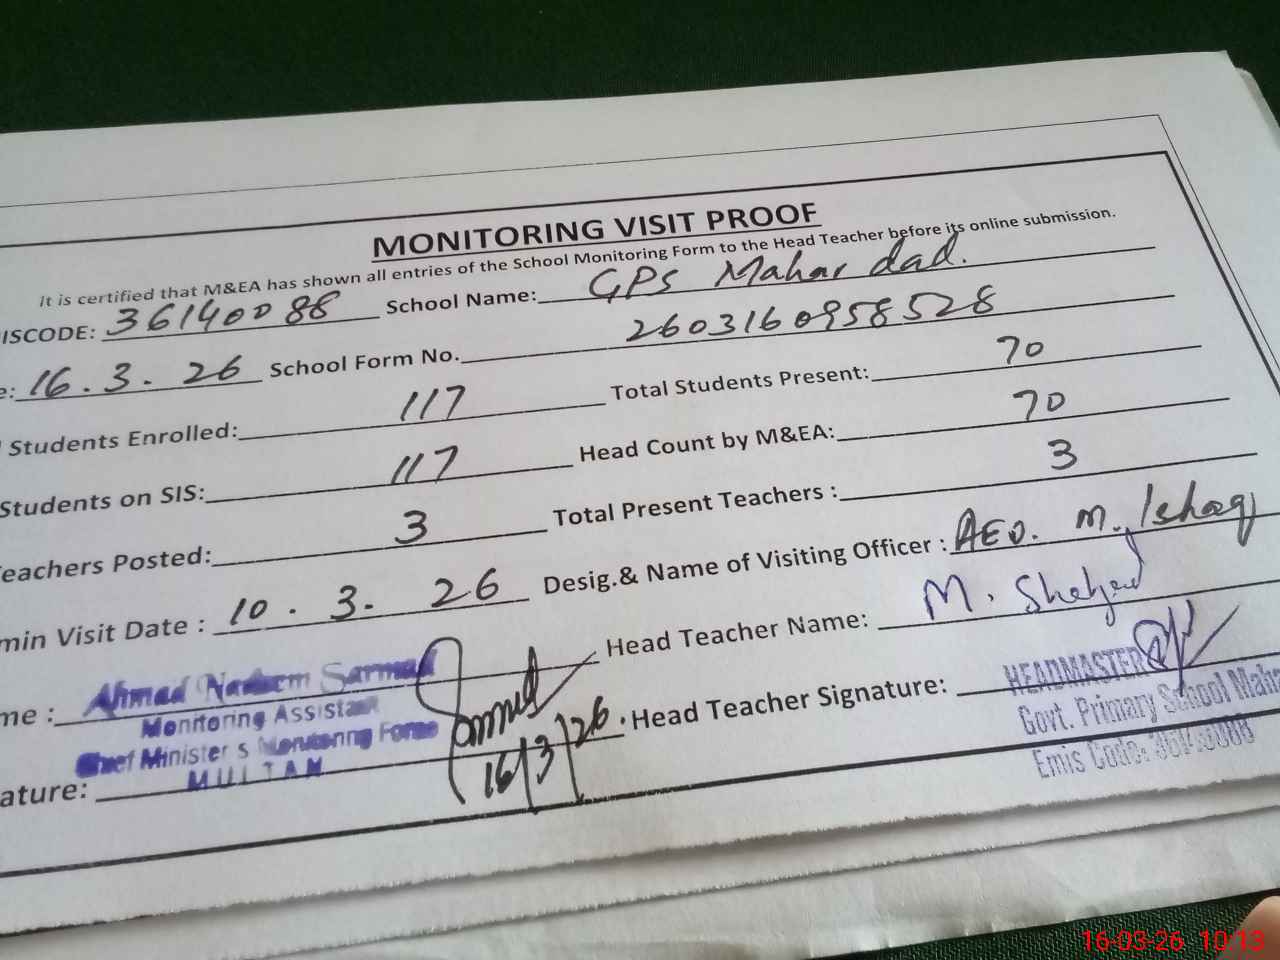 MONITORING VISIT PROOF
It is certified that M&EA has shown all entries of the School Monitoring Form to the Head Teacher before its online submission.
ISCODE: 36140088 School Name: GPS Mahar dad.
e: 16.3.26 School Form No. 2603160958528
Students Enrolled: 117 Total Students Present: 70
Students on SIS: 117 Head Count by M&EA: 70
eachers Posted: 3 Total Present Teachers : 3
min Visit Date : 10.3.26 Desig.& Name of Visiting Officer : AEO. M. Ishaq
me : Ahmad Nadeem Sarmad Head Teacher Name: M. Shehzad
Monitoring Assistant
Chief Minister s Monitoring Force
MULTAN
ature: 16/3/26. Head Teacher Signature:
HEADMASTER
Govt. Primary School Maha
Emis Code: 36140088
16-03-26 10:13